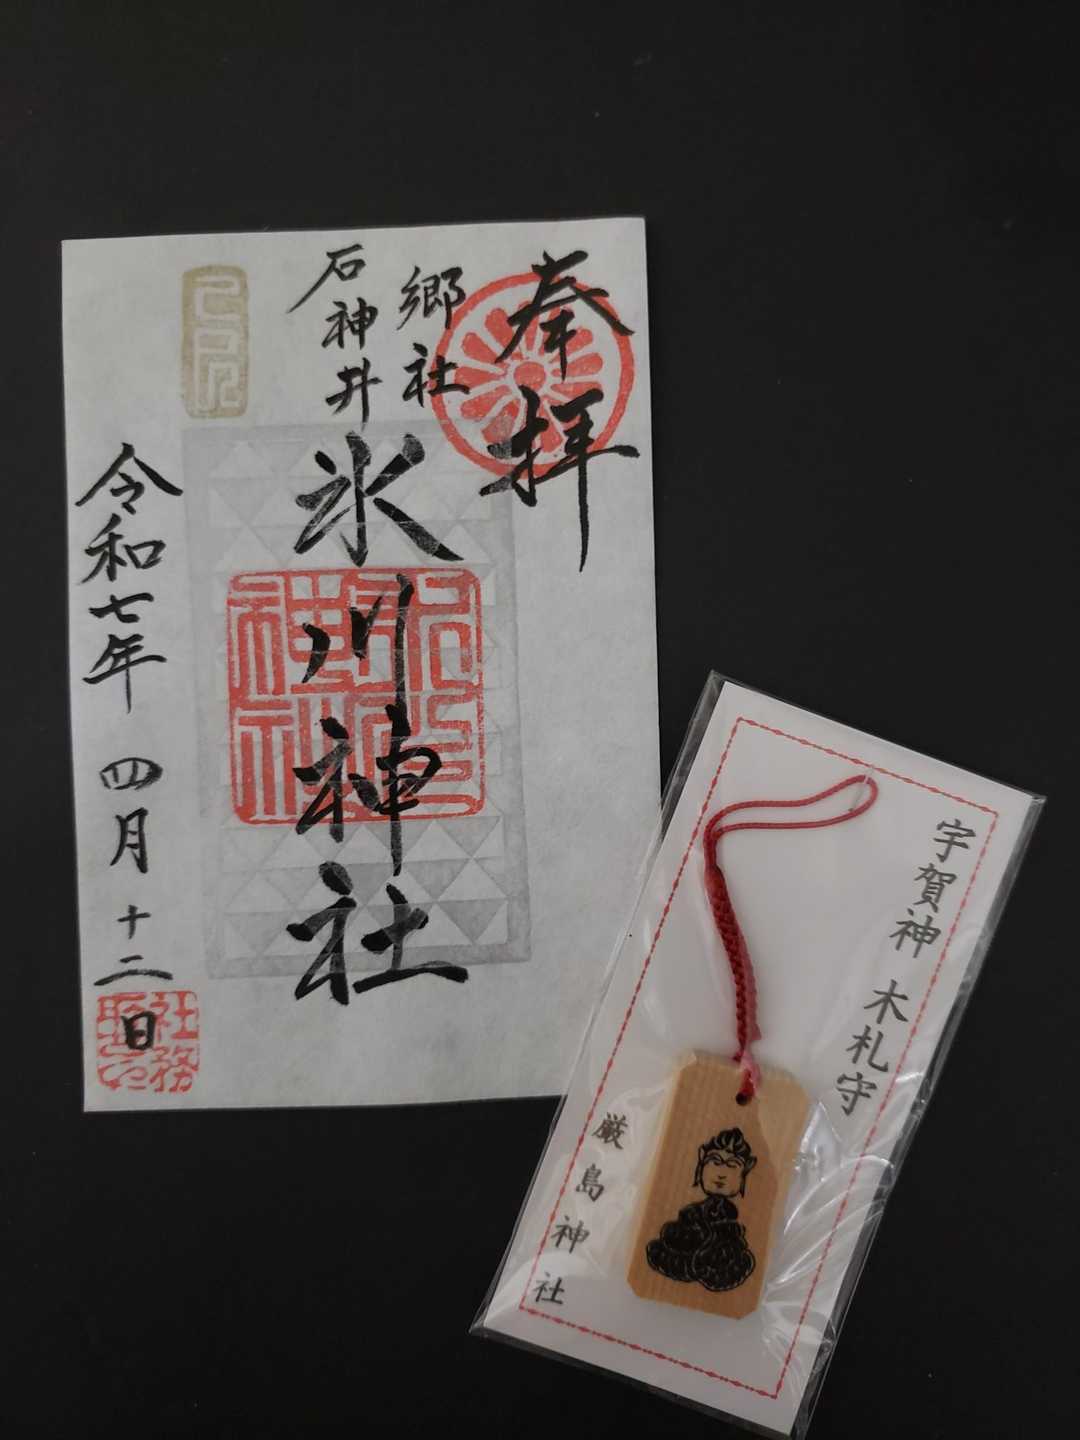 奉拝
郷社
石神井
氷川神社
令和七年 四月 十二日
社務
宇賀神 木札守
厳島神社